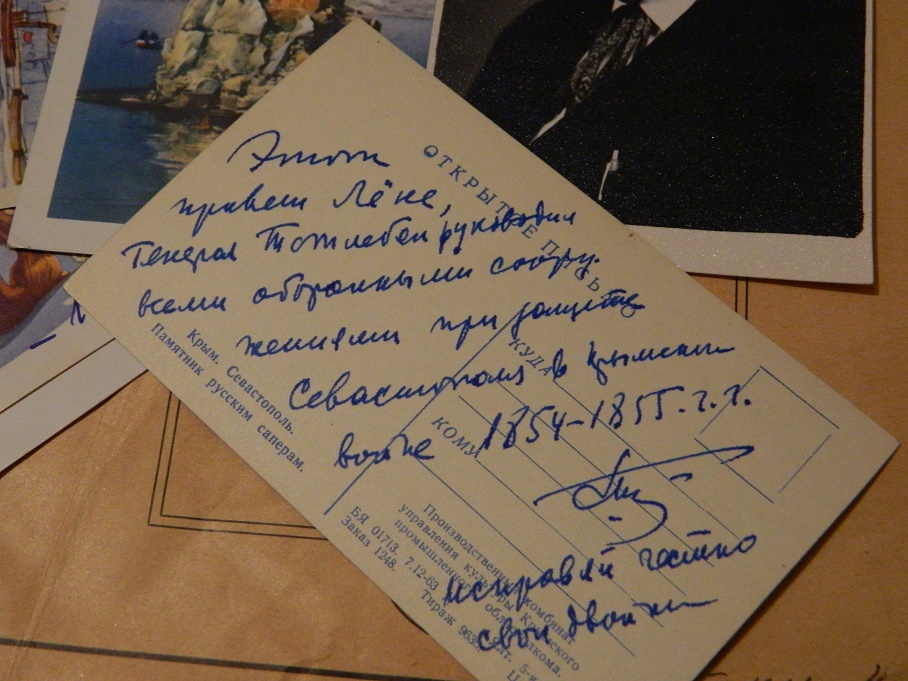 Этот
привет Лёне,
Генерал Тотлебен руководил
всеми оборонными соору-
жениями при защите
Севастополя в крымской
войне 1854-1855.г.г.
исправляй честно
свои двойки
ОТКРЫТОЕ ПИСЬ
КУДА
КОМУ
Крым. Севастополь.
Памятник русским саперам.
Производственный комбинат
управления культуры Крымского
промышленного облисполкома.
БЯ 01713. 7.12-63
Заказ 1248.
Тираж